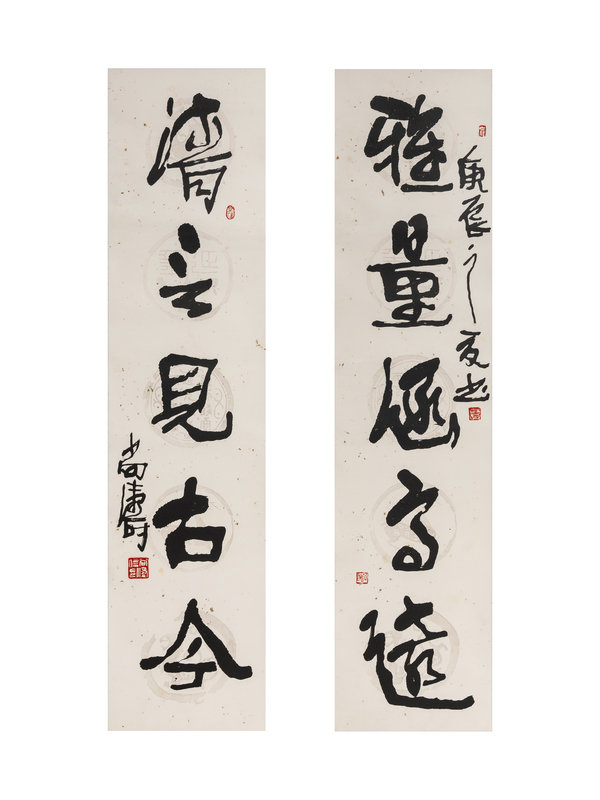 雅量涵高遠
庚辰之夏书
清言見古今
尚涛